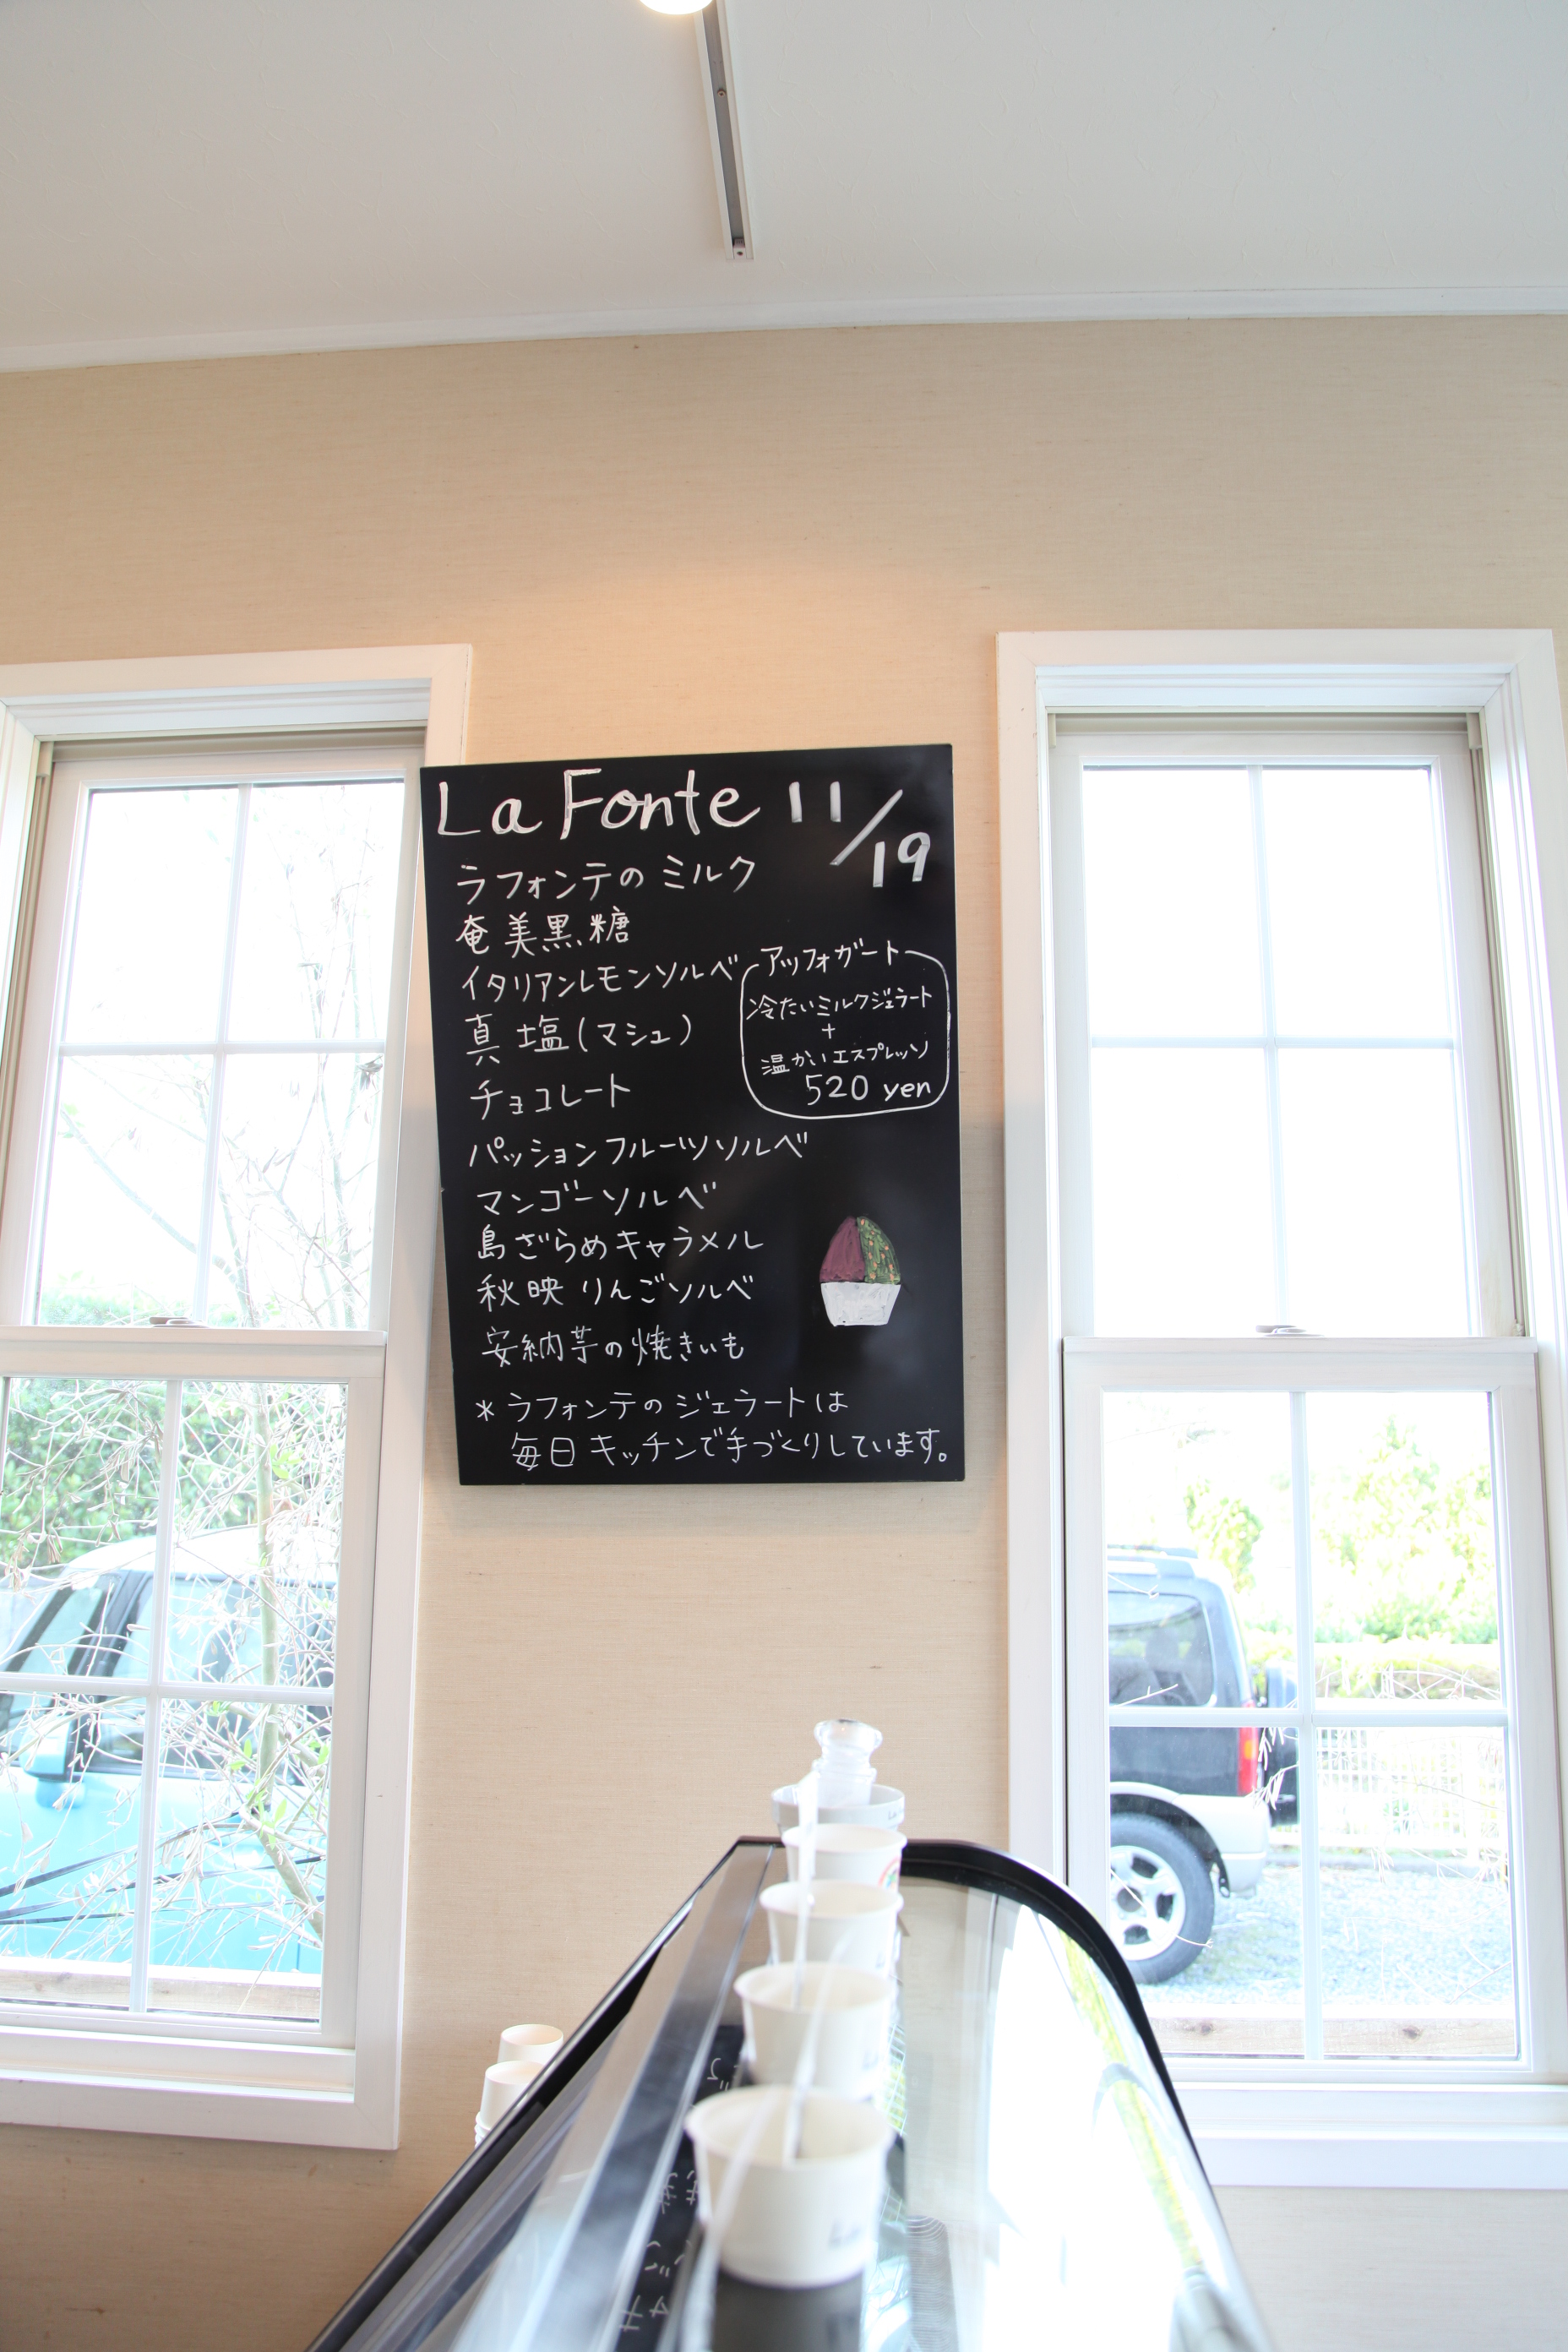 La Fonte 11/19
ラフォンテのミルク
奄美黒糖
イタリアンレモンソルベ
真塩(マシュ)
チョコレート
パッションフルーツソルベ
マンゴーソルベ
島ざらめキャラメル
秋映りんごソルベ
安納芋の焼きいも
アッフォガート
冷たいミルクジェラート
+
温かいエスプレッソ
520 yen
* ラフォンテのジェラートは
毎日キッチンで手づくりしています。